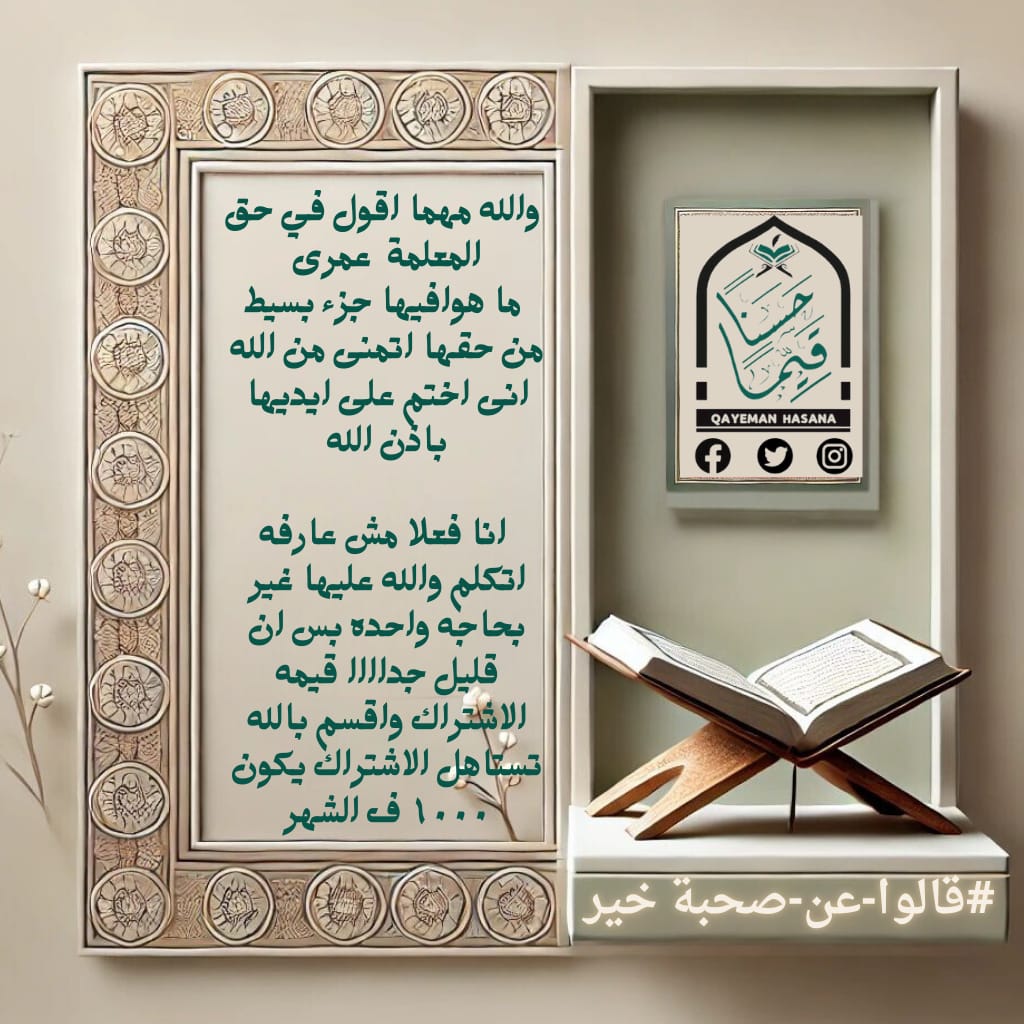 والله مهما اقول في حق
المعلمة عمرى
ما هوافيها جزء بسيط
من حقها اتمنى من الله
انى اختم على ايديها
باذن الله
انا فعلا مش عارفه
اتكلم والله عليها غير
بحاجه واحده بس ان
قليل جداااا قيمه
الاشتراك واقسم بالله
تستاهل الاشتراك يكون
١٠٠٠ ف الشهر
حَسَنًا
قَيِّمًا
QAYEMAN HASANA
#قالوا-عن-صحبة خير